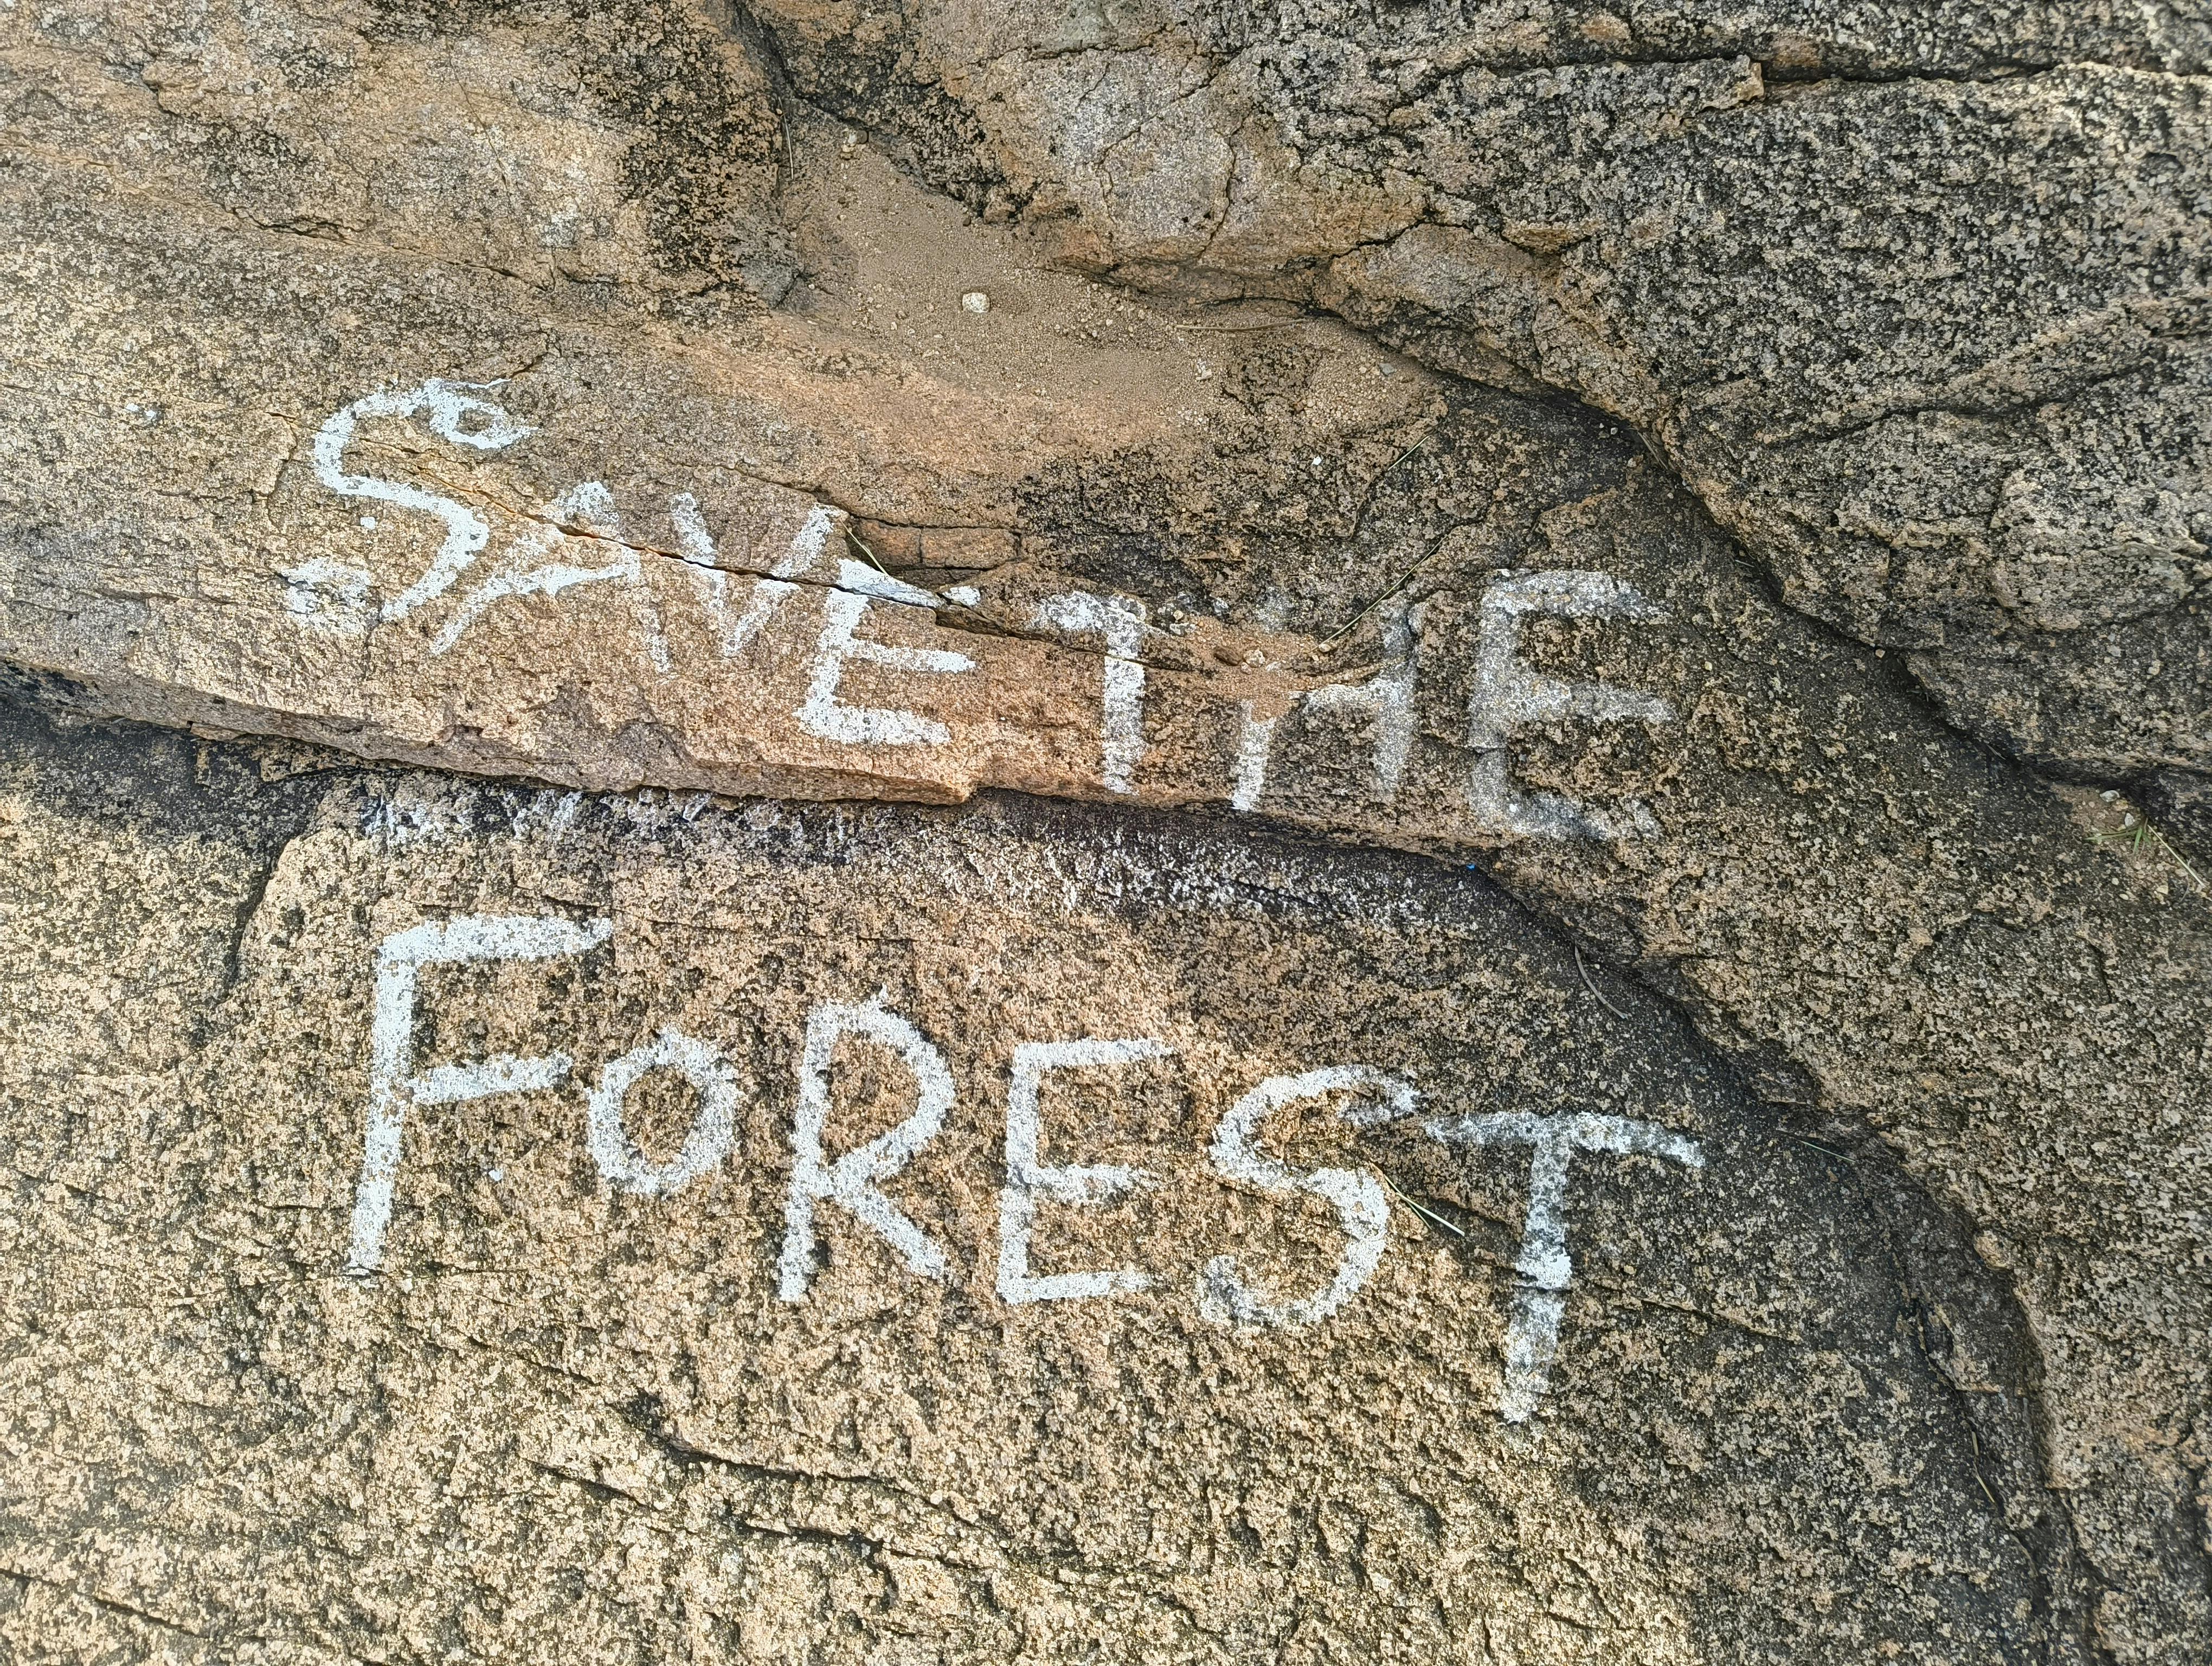 SAVE THE
FOREST